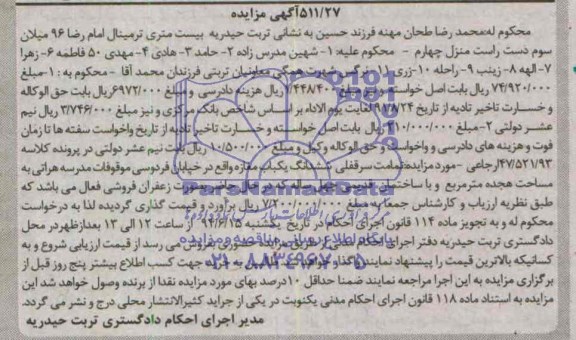 ۵۱۱/۲۷آگهی مزایده
محکوم له:محمد رضا طحان مهنه فرزند حسین به نشانی تربت حیدریه بیست متری ترمینال امام رضا ۹۶ میلان
سوم دست راست منزل چهارم - محکوم علیه: ۱- شهین مدرس زاده ۲- حامد ۳- هادی ۴- مهدی ۵۰ فاطمه ۶- زهرا
۷-الهه ۸- زینب ۹- راحله ۱۰-زری ۱۱- شهرت همگی تربتی فرزندان محمد آقا - محکوم به : ۱-مبلغ
۷۴/۹۲۰/۰۰۰ ریال بابت اصل خواسته ۱/۴۴۸/۴۰۰ ریال هزینه دادرسی و مبلغ ریال بابت حق الوکاله
و خسارت تاخیر تادیه از تاریخ لغایت یوم الاداء بر اساس شاخص بانک مرکزی و نیز مبلغ ۳/۷۴۶/۰۰۰ ریال نیم
عشر دولتی ۲-مبلغ ریال بابت اصل خواسته و خسارت تاخیر تادیه از تاریخ واخواست سفته ها تا زمان
فوت و هزینه های دادرسی و واخواست و حق الوکاله وکیل و مبلغ ۱۰/۵۰۰/۰۰۰ ریال بابت نیم عشر دولتی در پرونده کلاسه
۴۷/۵۲۱/۹۳ارجاعی -مورد مزایده:تمامت سرقفلی ششدانگ یکباب مغازه واقع در خیابان فردوسی موقوفات مدرسه هراتی به
مساحت هجده مترمربع و با ساختمان زعفران فروشی فعال می باشد که
طبق نظریه ارزیاب و کارشناس جمعا به مبلغ ریال برآورد و قیمت گذاری گردیده لذا به درخواست
محکوم له و به تجویز ماده ۱۱۴ قانون اجرای احکام در تاریخ یکشنبه ۹۴/۶/۱۵ از ساعت ۱۲ الی ۱۳ بعدازظهر در محل
دادگستری تربت حیدریه دفتر اجرای احکام بفروش می رسد از قیمت ارزیابی شروع و به
کسانیکه بالاترین قیمت را پیشنهاد نمایند جهت کسب اطلاع بیشتر پنج روز قبل از
برگزاری مزایده به این اجرا مراجعه نمایند ضمنا حداقل ۱۰درصد بهای مورد مزایده نقدا از برنده وصول خواهد شد این
مزایده به استناد ماده ۱۱۸ قانون اجرای احکام مدنی یکنوبت در یکی از جراید کثیرالانتشار محلی درج و نشر می گردد.
مدیر اجرای احکام دادگستری تربت حیدریه
پایگاه اطلاع رسانی مناقصه و مزایده
۰۲۱-۸۸۳۴۹۶۷۰